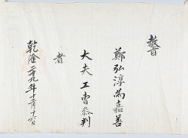 教旨
鄭弘淳為嘉善
大夫工曹參判
者
乾隆二十九年十二月十一日